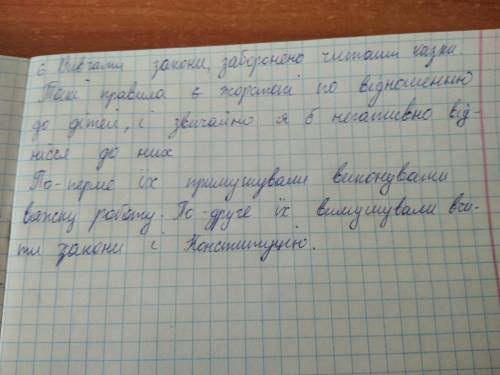 6 Вивчати закони, заборонено читати казки.
Такі правила є жорстокі по відношенню
до дітей, і звичайно я б негативно від-
нісся до них
По-перше їх примушували виконувати
важку роботу. По-друге їх вимушували вчи-
ти закони і Конституцію.